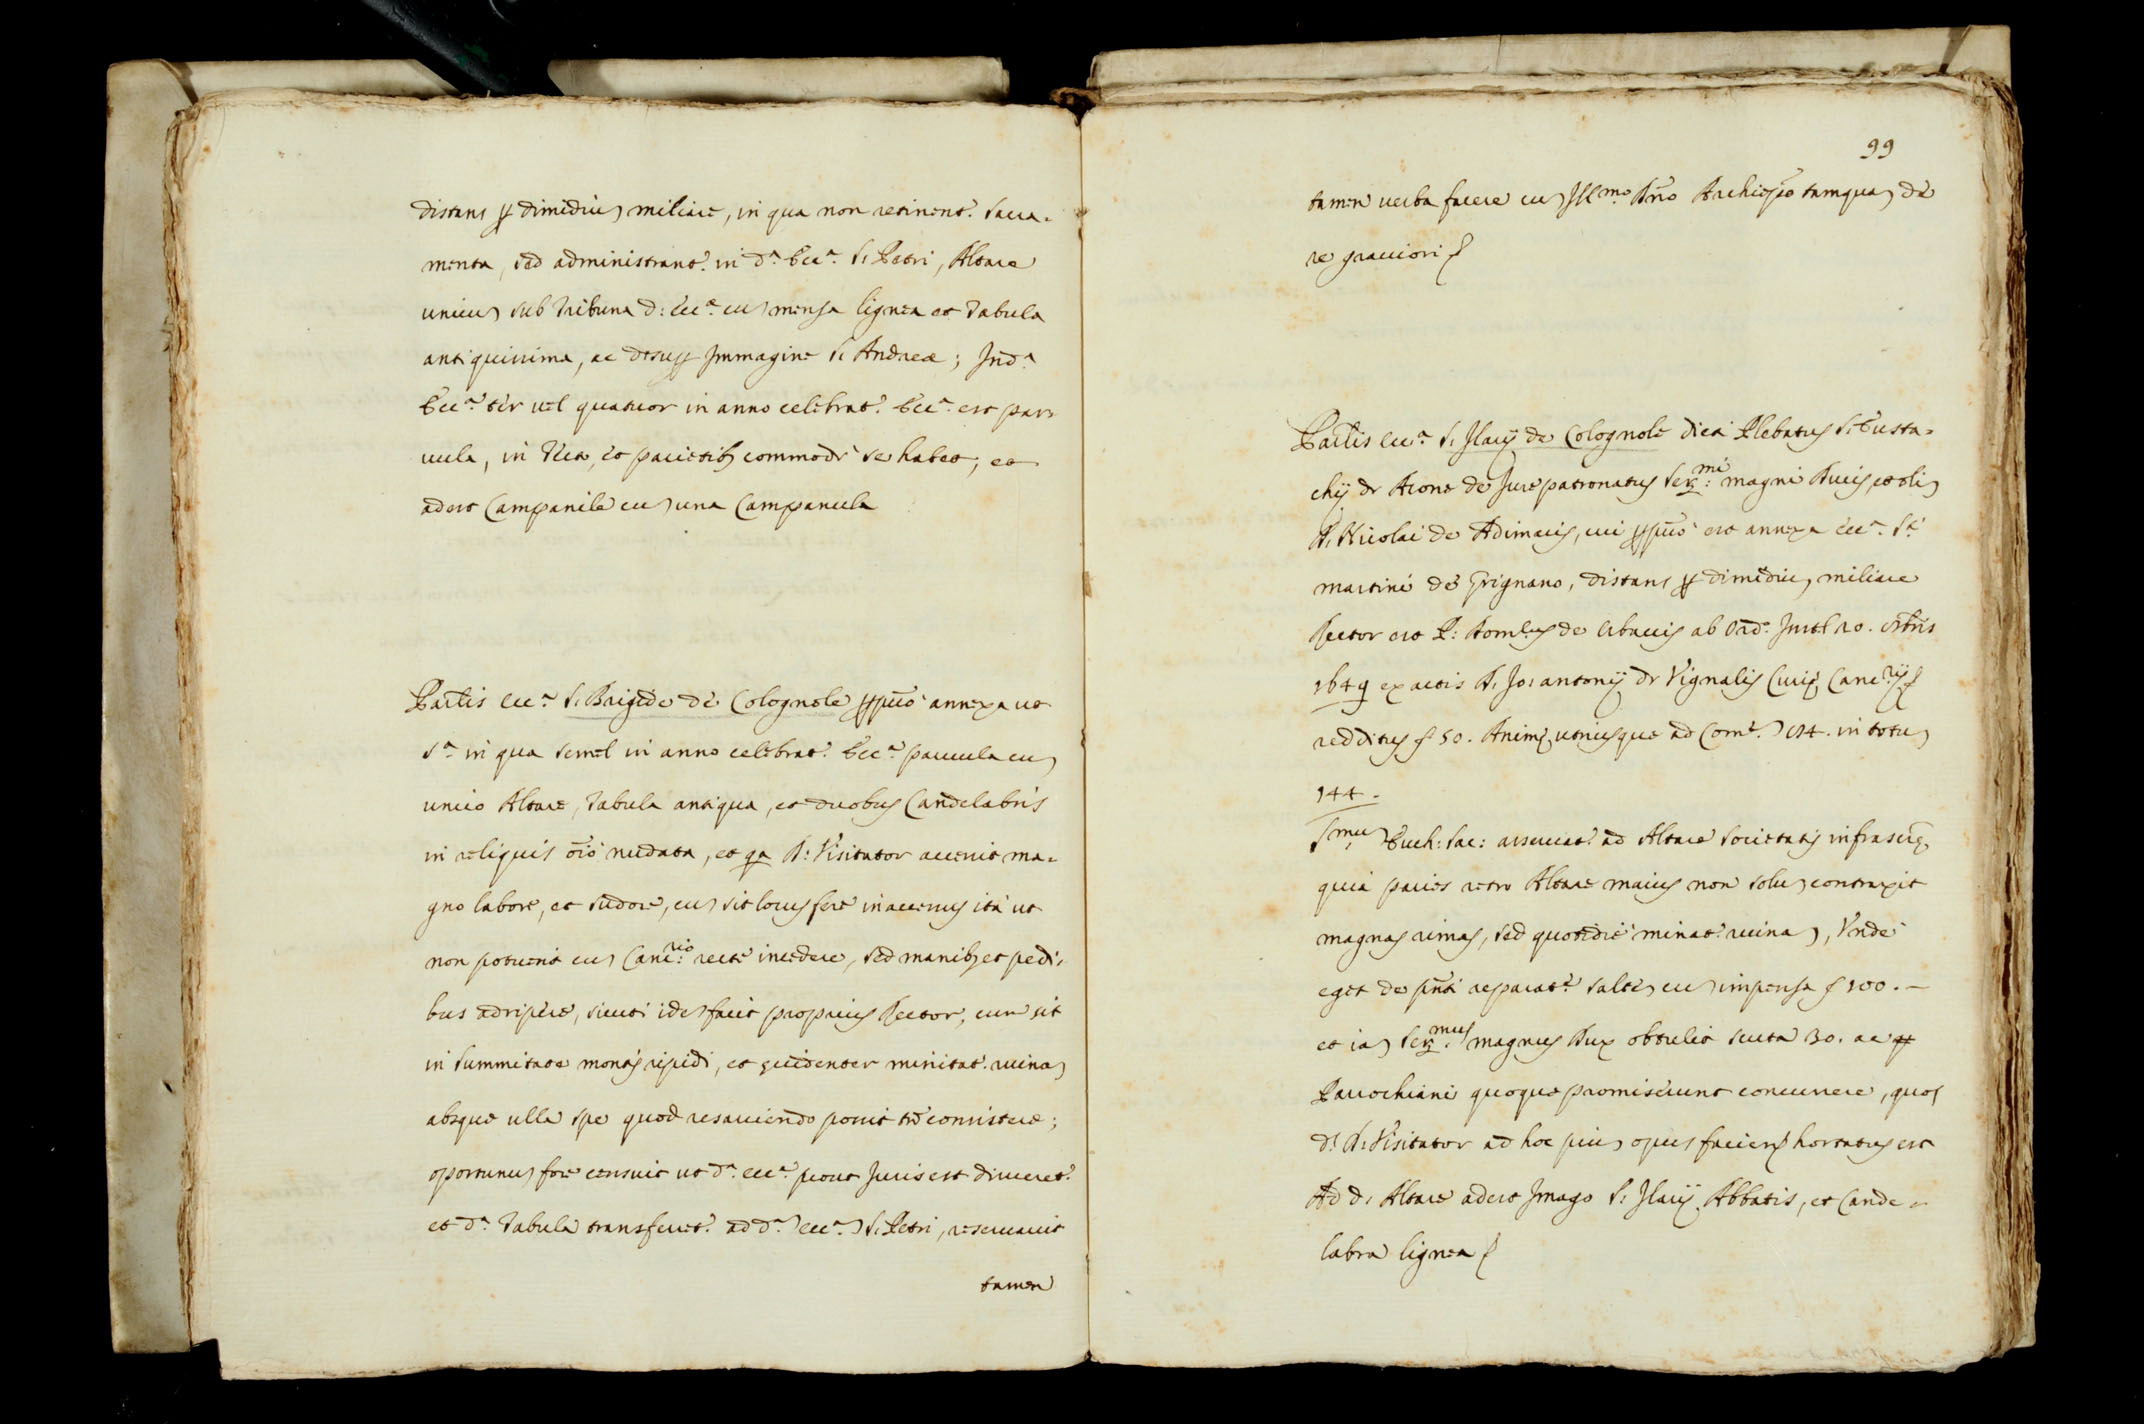 distans ꝑ dimidiũ miliare, in qua non retinent.ʳ Sacra-
menta, sed administrant.ʳ in d.ª Ecc.ª S. Petri, Altare
unicũ sub Tribuna d: Ecc.ª cũ mensa lignea et Tabula
antiquissima, ac desuꝑ Immagine S. Andreæ; In d.ª
Ecc.ª ter vel quatuor in anno celebrat.ʳ Ecc.ª est par-
uula, in Tecto, et parietibꝫ commode se habet, et
adest Campanile cũ una Campanula
Par.lis Ecc.ª S. Brigide de Colognole ꝑpuò annexa ut
s.ª in qua semel in anno celebrat.ʳ Ecc.ª paruula cũ
unico Altare, Tabula antiqua, et duobus Candelabris
in reliquis oĩo nudata, et qa D: Visitator accessit ma-
gno labore, et sudore, cũ sit locus fere inaccessus ità ut
non potuerit cũ Canc:rio recte incedere, sed manibꝫ et pedi-
bus adripere, sicuti idẽ facit proprius Rector, cum sit
in summitate montis ripidi, et euidenter minitat.ʳ ruinã
absque ulla spe quod resarciendo possit tñ consistere;
oportunũ fore censuit ut d.ª ecc.ª prout Juris est dirueret.ʳ
et d.ª Tabula transferret.ʳ ad d.ã ecc.ã S. Petri, reseruauit
tamen
99
tamen uerba facere cũ Ill.mo Dño Archiepõ tamquã de
re grauiori
Par.lis ecc.ª S. Ilarij de Colognole dicti Plebatus S. Eusta-
chij de Acone de Jure patronatus Ser:mi magni Ducis, et oli
D. Nicolai de Adimaris, cui ꝑpuò est annexa ecc.ª S.ti
martini de Grignano, distans ꝑ dimidiũ miliare
Rector est P: de Urbanis ab Ord.
1649 ex actis D. Jo: antonij de Vignalis Curię Canc.rij
redditus 50. Animę utriusque ad Com.ẽ 114. in totũ
144.
S.mũ Euch: Sac: asseruat.ʳ ad Altare Societatis infrascrę,
quia paries retro Altare maius non solũ contraxit
magnas rimas, sed quotidie minat.ʳ ruinã, Unde
eget de pñti reparat.ẽ saltẽ cũ impensa 100.-
et iã Ser:mus magnus Dux obtulit scuta 30. ac
Parrochiani quoque promiserunt concurrere, quos
d. D. Visitator ad hoc piũ opus hortatus est
Ad d. Altare adest Imago S: Ilarij Abbatis, et Cande-
labra lignea